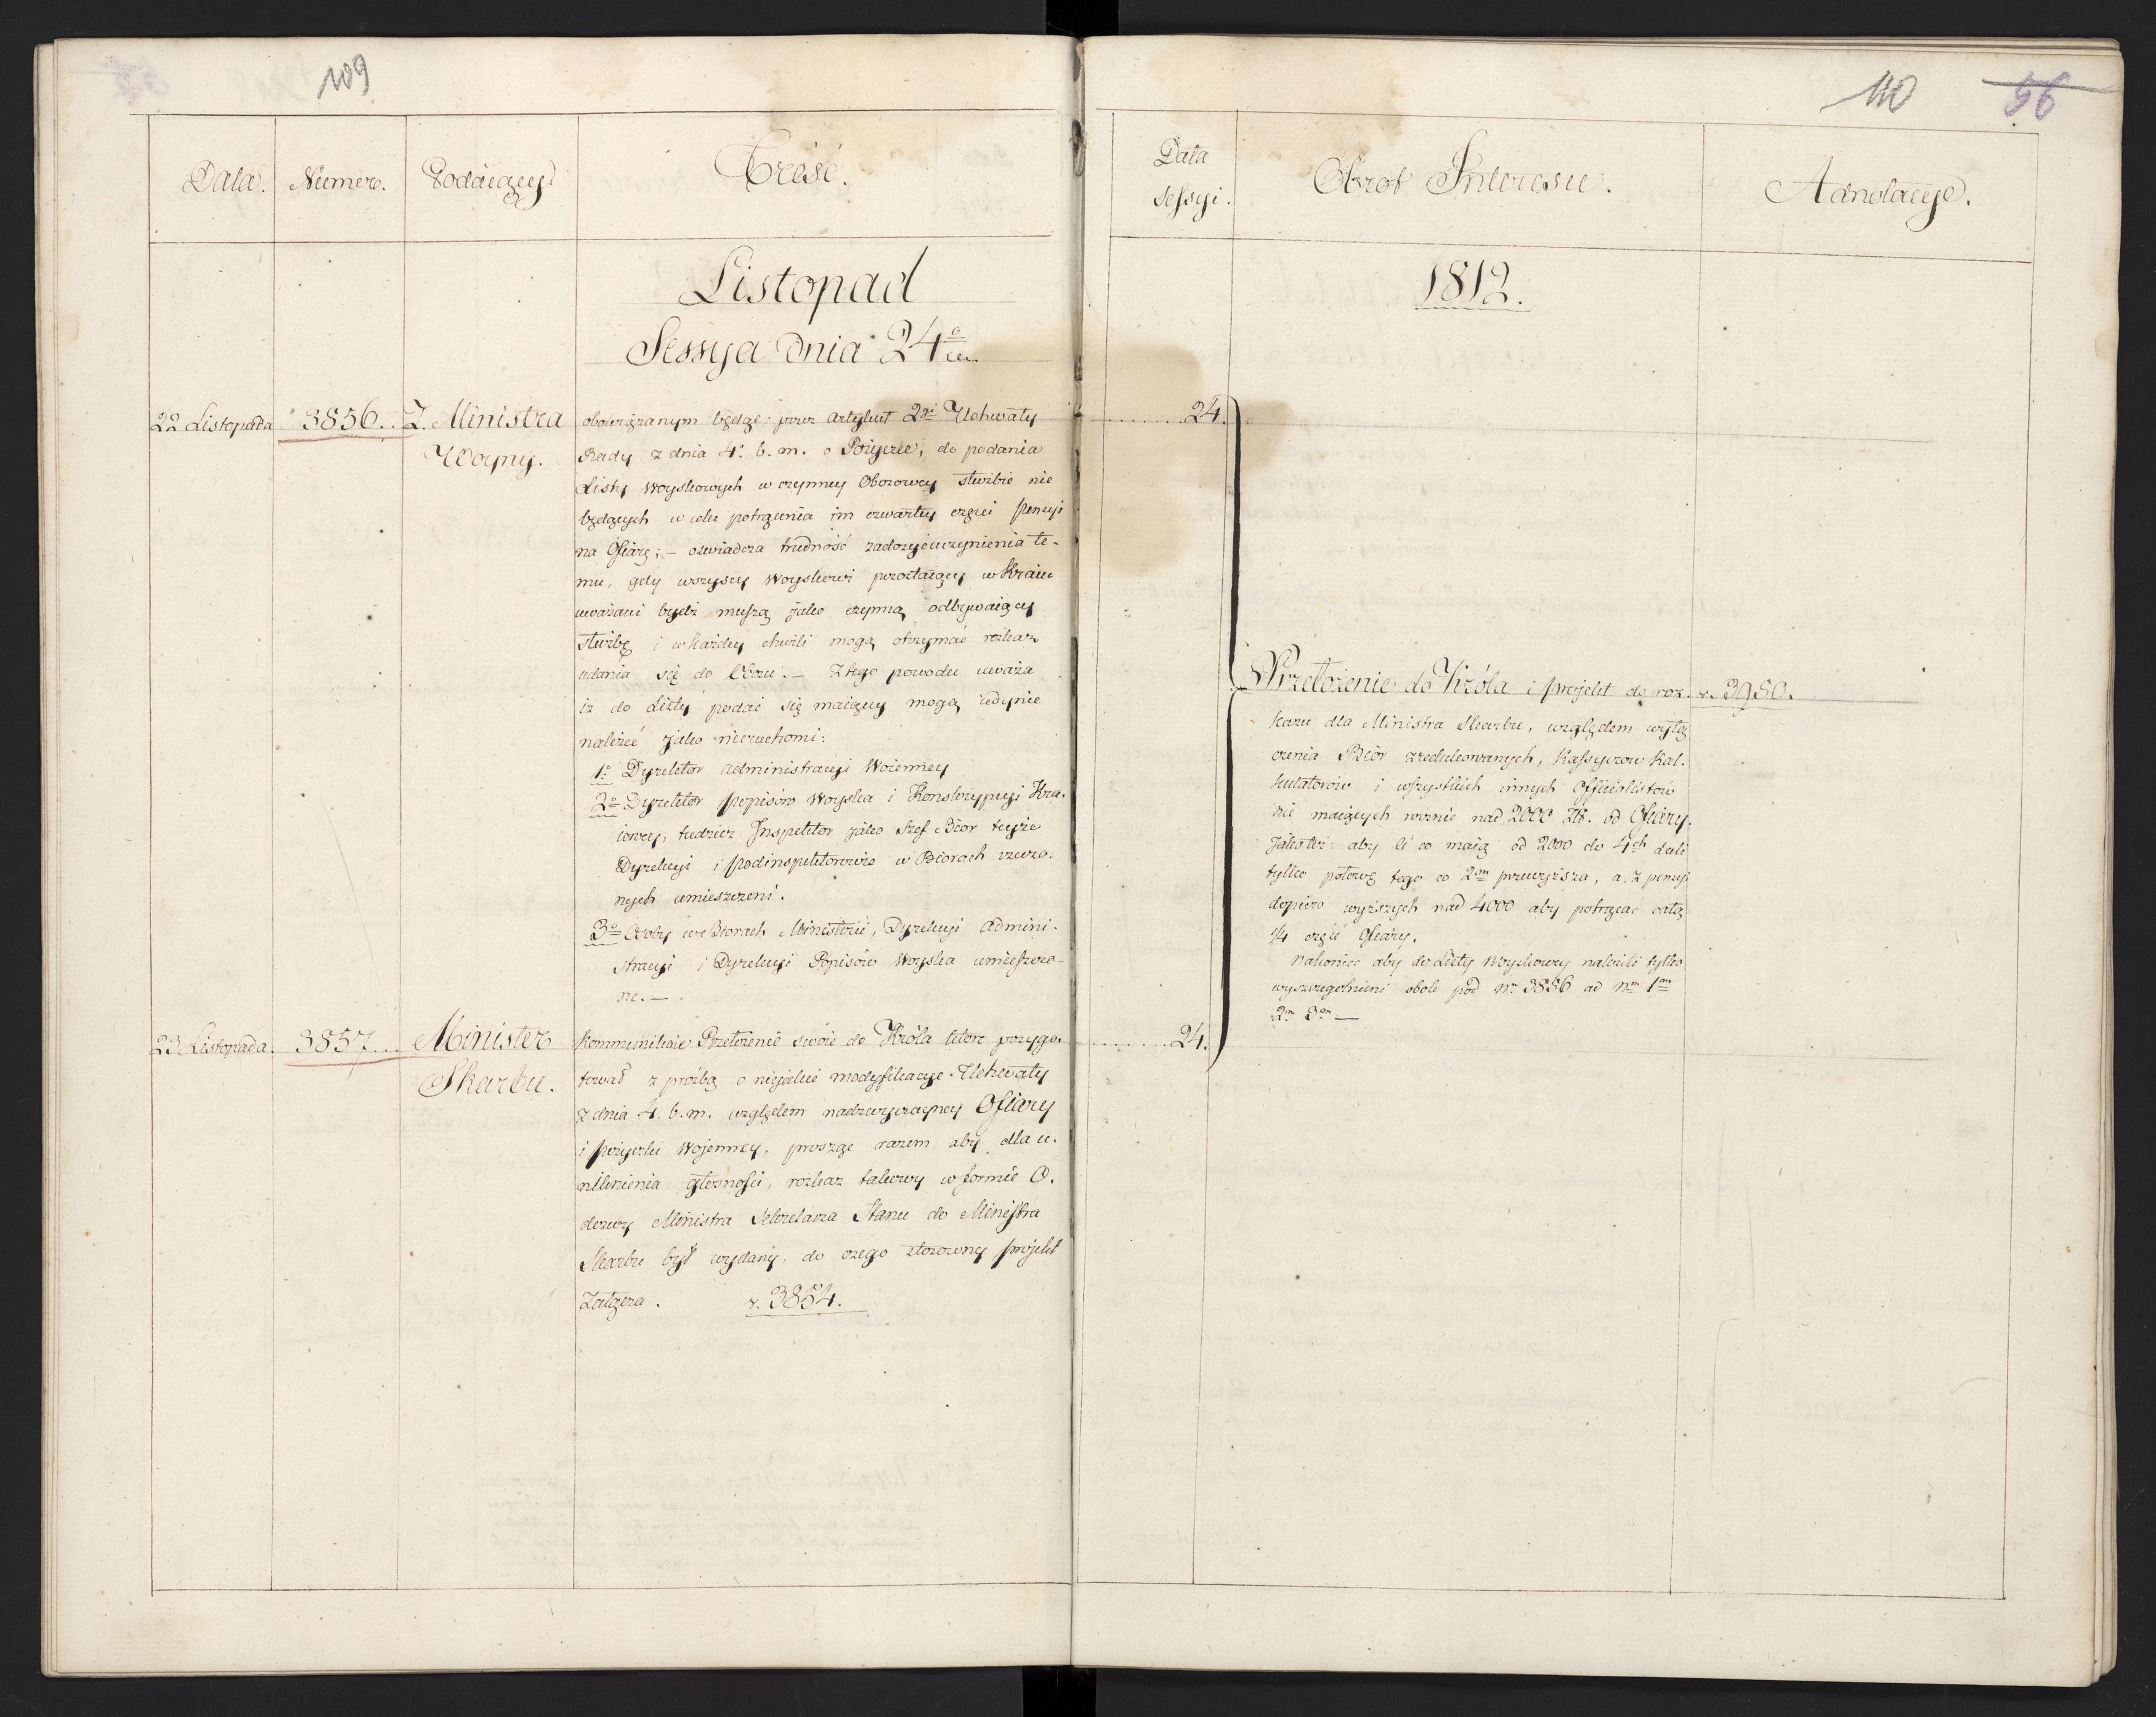 109
Data.
Numero.
Podaiący.
Treść.
Listopad
Sessya dnia 24go
22 Listopada 3856. Z. Ministra
Woyny.
obowiązanym będąc przez Artykuł 2gi Uchwały
Rady z dnia 4. b. m. o Pożyczce, do podania
Listy Woyskowych w czynney Obozowey służbie nie
będących w celu potrącenia im czwartey części pensyi
na Ofiarę; – oświadcza trudność zadosyćuczynienia te-
mu, gdy wszyscy Woyskowi pozostaiący w Kraiu
uważani bydź muszą jako czynną odbywaiący
służbę i w każdey chwili mogą otrzymać rozkaz
udania się do Obozu. – Z tego powodu uważa
iż do Listy podać się maiącey mogą iedynie
należeć jako nieruchomi:
1o Dyrektor Administracyi Woienney
2o Dyrektor popisów Woyska i Konskrypcyi Kra-
iowey, tudzież Inspektor jako Szef Biór teyże
Dyrekcyi i podinspektorowie w Biorach rzeczo-
nych umieszczeni.
3o Osoby w Biorach Ministerii, Dyrekcyi Admini-
stracyi i Dyrekcyi Popisów Woyska umieszczo-
ne. –
23 Listopada. 3857. Minister
Skarbu.
kommunikuie Przełożenie swoie do Króla które przygo-
tował z prośbą o niejakie modyfikacye Uchwały
z dnia 4. b. m. względem nadzwyczayney Ofiary
i pożyczki Wojenney, prosząc razem aby dla u-
niknienia głośności, rozkaz takowy w formie O-
dezwy Ministra Sekretarza Stanu do Ministra
Skarbu był wydany, do czego stosowny projekt
Załącza. v. 3854.
110 56
Data
Sessyi.
Obrot Interesu.
Adnotacye.
1812.
24.
Przełożenie do Króla i projekt do roz- v. 3950.
kazu dla Ministra Skarbu, względem wyłą
czenia Biór zredukowanych, Kassyerow Kal-
kulatorów i wszystkich innych Officialistów
nie maiących rocznie nad 2000 Zł. od Ofiary.
Jako też: aby ci co maią od 2000 do 4ch dali
tylko połowę tego co 2m przewyższa, a z pensyi
dopiero wyższych nad 4000 aby potrącać całą
1/4 część Ofiary.
nakoniec aby do Listy Woyskowey należeli tylko
wyszczególnieni obok pod No 3856 ad Nm 1m
2m 3m –
24.